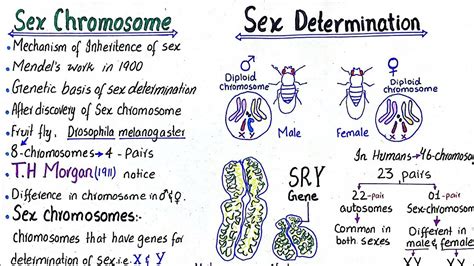 Sex Chromosome
• Mechanism of Inheritence of sex
• Mendel's work in 1900
• Genetic basis of sex determination
• After discovery of Sex chromosome
• Fruit fly. Drosophila melanogaster
8-chromosomes → 4 - Pairs
• T.H Morgan (1911) notice
• Difference in chromosome in ♂ & ♀.
• Sex chromosomes:-
Chromosomes that have genes for
determination of sex i.e X & Y
Sex Determination
♂
Diploid
chromosome
♀
Diploid
chromosome
X Y
Male
X X
Female
SRY
Gene
In Humans → 46-chromosomes
23 pairs
22-pair
autosomes
Common in
both sexes
01-pair
Sex-chromosome
Different in
male & female